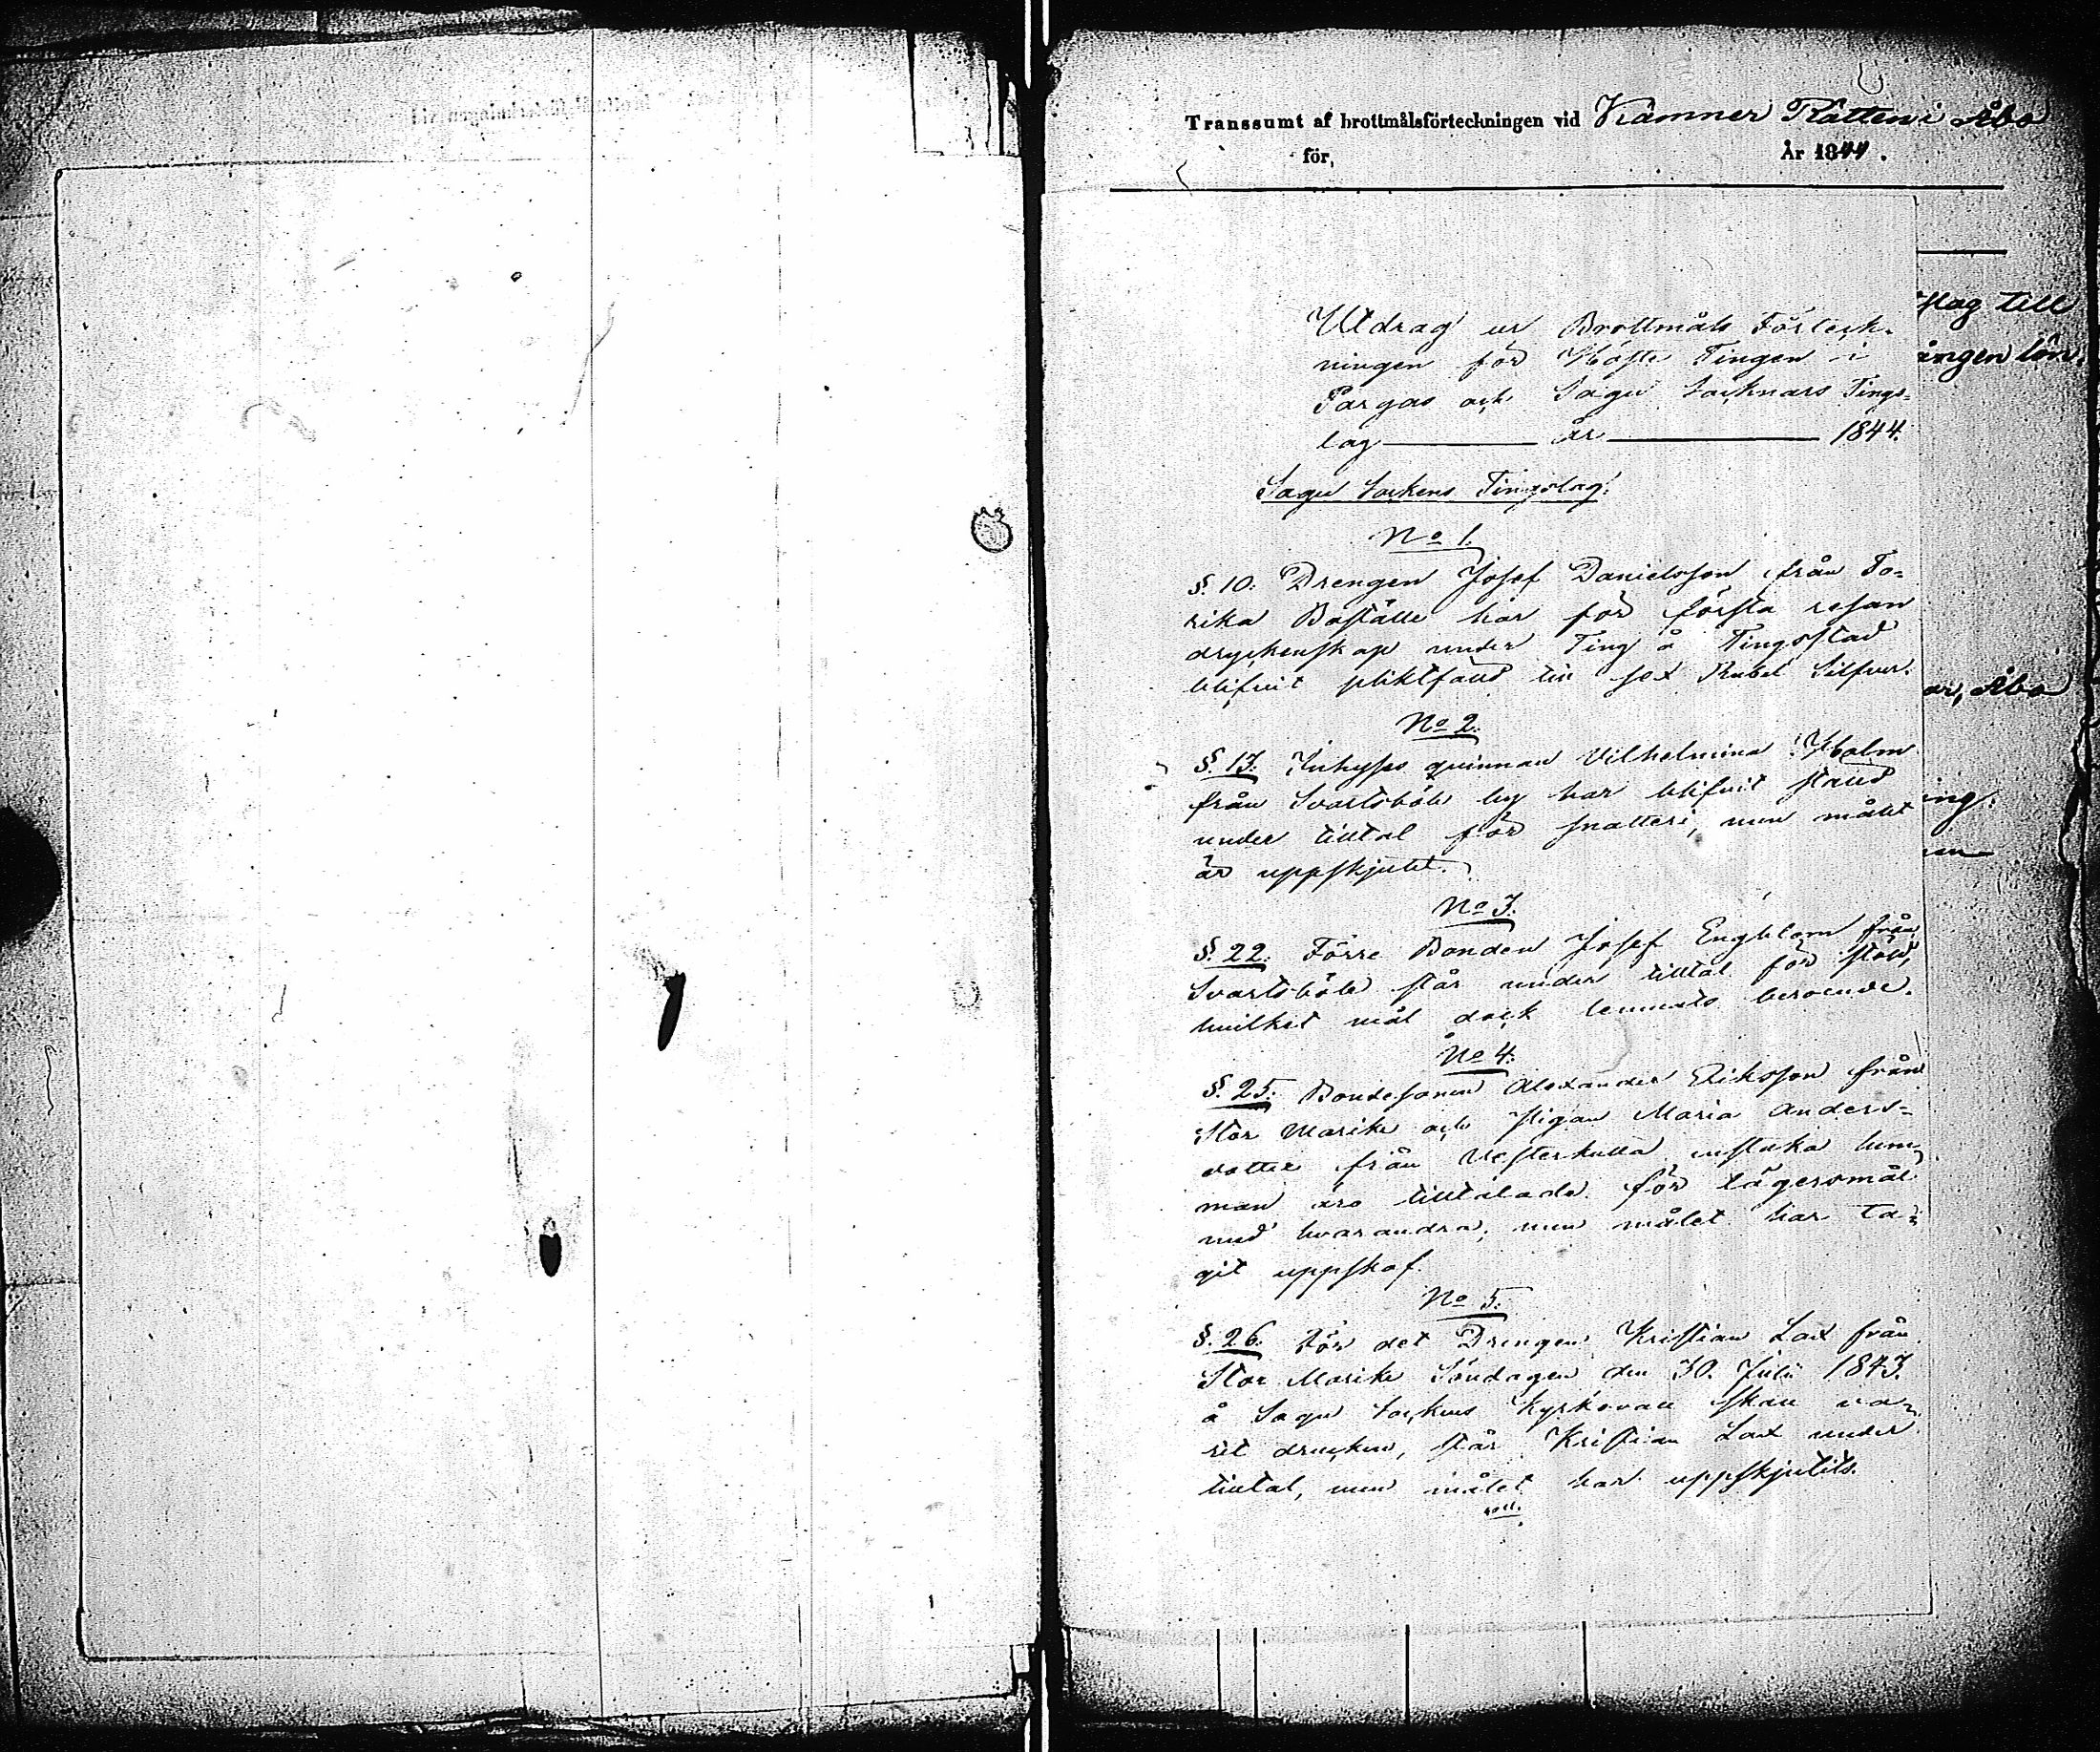 Transsumt af brottmålsförteckningen vid Kämner Rätten i Åbo
för, År 1844.
Utdrag ur Brottmåls Förteck-
ningen för Höste Tingen i
Pargas och Sagu Socknars Tings-
lag år 1844.
Sagu Sockens Tingslag.
No 1.
§. 10. Drengen Josef Danielsson från To-
rika Boställe har för första resan
dryckenskap under Ting å Tingsstad
blifvit pliktfäld till sex Rubel Silfver.
No 2.
§. 13. Inhyses qvinnan Vilhelmina Holm
från Svartsböle by har blifvit stäld
under tilltal för snatteri, men målet
är uppskjutet.
No 3.
§. 22. Förre Bonden Josef Engblom från
Svartsböle står under tilltal för stöld,
hvilket mål dock lemnats beroende.
No 4.
§. 25. Bondesonen Alexander Eriksson från
Stor Marike och Pigan Maria Anders-
dotter från Vesterkulla
man äro tilltalade för lägersmål
med hvarandra; men målet har ta-
git uppskof.
No 5.
§. 26. För det Drengen Kristian Lax från
Stor Marike Söndagen den 30. Julii 1843.
å Sagu Sockens Kyrkovall skall va-
rit drucken, står Kristian Lax under
tilltal, men målet har uppskjutits.
flag till
ången lön.
ar, Åbo
ing.